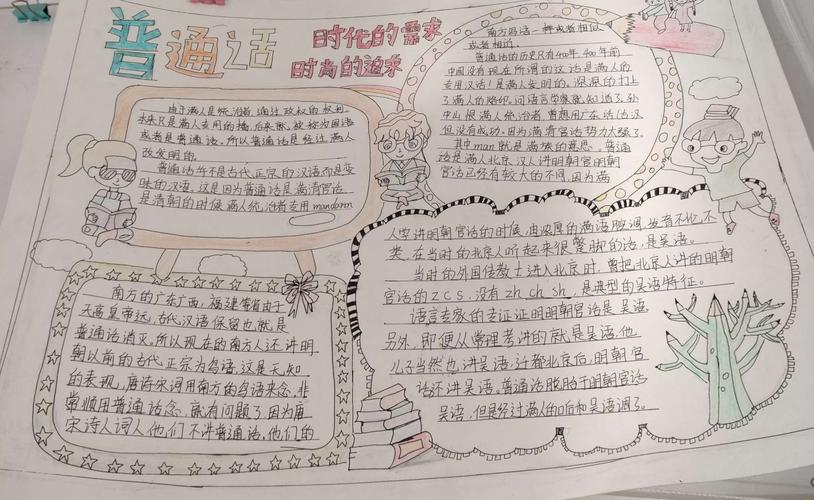 普通话
时代的需求
时尚的追求
由于满人是统治者，通过政权的权利，
本来只是满人专用的
后来就被称为国语
或者是普通话。所以普通话是经过满人
改发明的。
普通话并不是古代正宗的汉语而是变
味的汉语，这是因为普通话是满清官话
是清朝的时候满人统治者专用mandarin
南方的话一样或者相似
或者相近。
普通话的历史只有400年，400年前
中国没有现在所谓的这话是满人的
专用汉话！是满人发明的。深深的打上
了满人的烙印。问语言学家就知道了，孙
中山恨满人统治者，曾想用广东话/古汉
但没有成功。因为满清官话势力太强了。
其中man就是满族的意思。普通
话是满人北京汉人讲明朝官明朝
官话已经有较大的不同，因为满
人学讲明朝官话的时候，由浓厚的满语腔调，发音不伦，不
类，在当时的北京人听起来很蹩脚的话，是吴语。
当时的外国传教士进入北京时，曾把北京人讲的明朝
官话的z c s，没有zh ch sh，是典型的吴语特征。
语言专家的考证证明明朝官话是吴语。
另外，即便从常理考讲的就是吴语，他
儿子当然也讲吴语，迁都北京后，明朝官
话还讲吴语。普通话脱胎于明朝官话
吴语，但是经过满人的口后和吴语调了。
南方的广东广西，福建等省由于
天高皇帝远，古代汉语保留也就是
普通话消灭，所以现在的南方人还讲明
朝以前的古代，正宗为鸟语，这是无知
的表现，唐诗宋词用南方的鸟语来念，非
常顺用普通话念，就有问题了因为唐
宋诗人词人他们不讲普通话，他们的